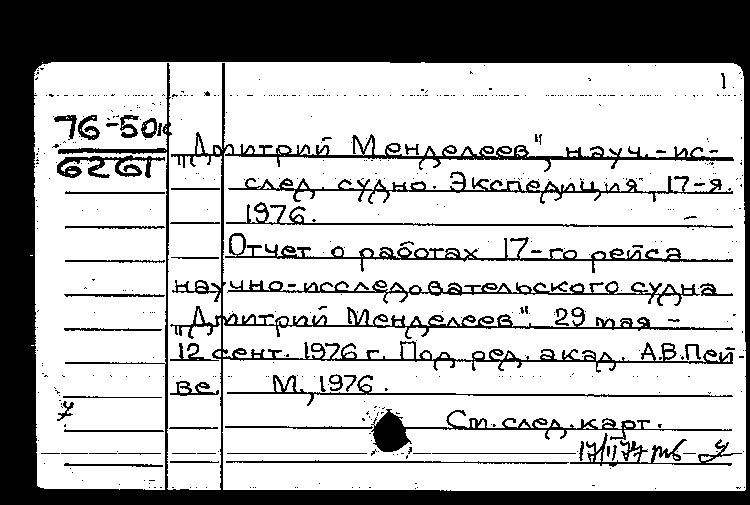 1
76-50
6261
„Дмитрий Менделеев", науч.-ис-
след. судно. Экспедиция, 17-я.
1976.
Отчет о работах 17-го рейса
научно-исследовательского судна
„Дмитрий Менделеев". 29 мая -
12 сент. 1976 г. Под ред. акад. А.В.Пей-
ве. М., 1976.
См. след. карт.
17/II 77